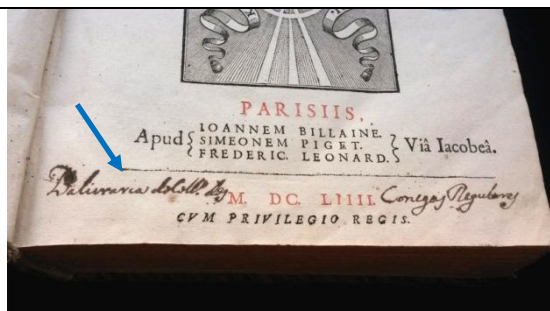 PARISIIS,
Apud { IOANNEM BILLAINE.
SIMEONEM PIGET.
FREDERIC. LEONARD. } Viâ Iacobeâ.
Da livraria do Coll. dos Conegos Regulares
M. DC. LIIII.
CVM PRIVILEGIO REGIS.